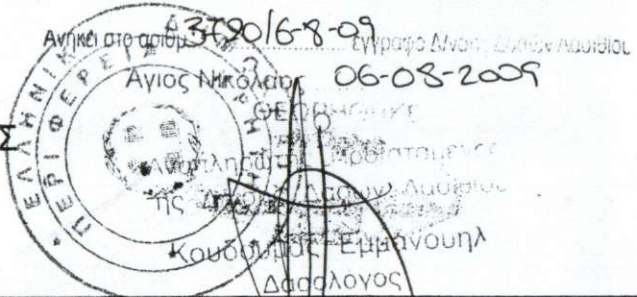 Ανήκει στο αριθμ 3790/6-8-09 έγγραφο Δ/νσης Δασών Λασιθίου
Άγιος Νικόλαος 06-08-2009
ΘΕΩΡΗΘΗΚΕ
Αναπληρωτής Προϊστάμενος
της Δασών Λασιθίου
Κουδουμάς Εμμανουήλ
Δασολόγος
ΕΛΛΗΝΙΚ
ΠΕΡΙΦΕΡΕΙΑ
Σ